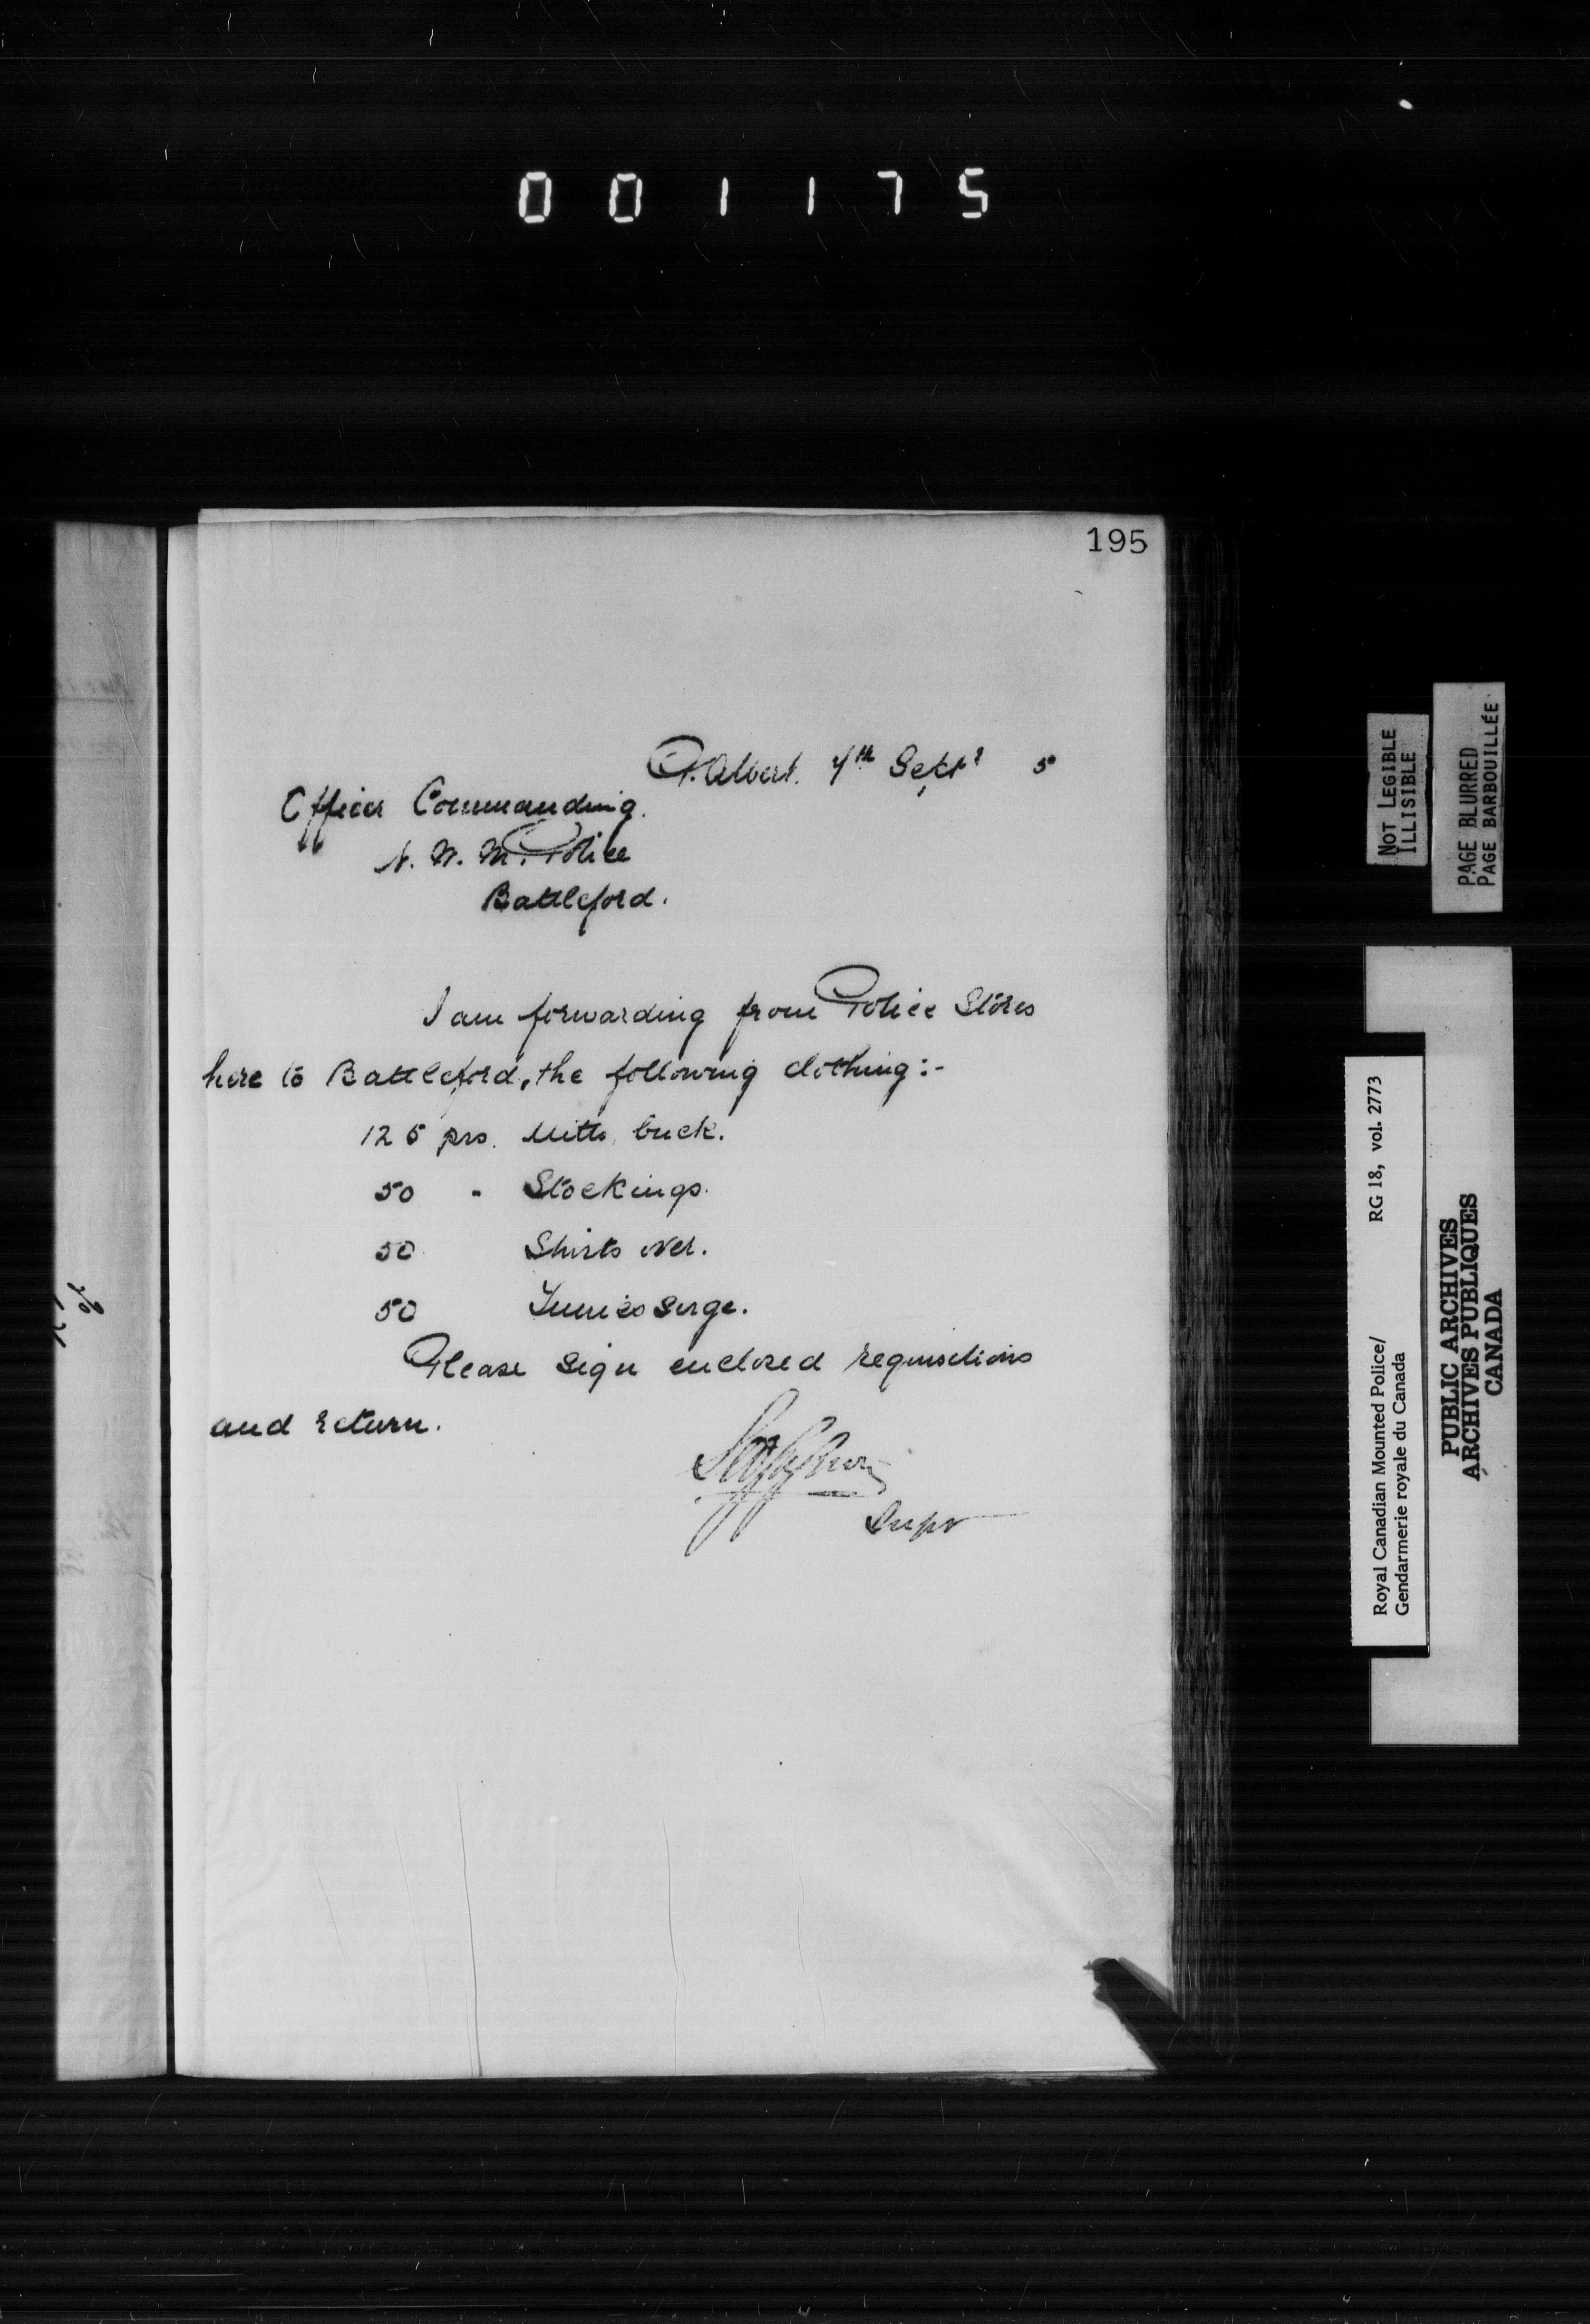 001175
195
P. Albert. 4th Septr 5
Officer Commanding.
N. W. M. Police
Battleford.
I am forwarding from Police Stores
here to Battleford, the following clothing:-
125 prs. Mitts buck.
50 " Stockings.
50 Shirts over.
50 Tunics serge.
Please sign enclosed requisitions
and return.
Supt
NOT LEGIBLE
ILLISIBLE
PAGE BLURRED
PAGE BARBOUILLÉE
Royal Canadian Mounted Police/ RG 18, vol. 2773
Gendarmerie royale du Canada
PUBLIC ARCHIVES
ARCHIVES PUBLIQUES
CANADA